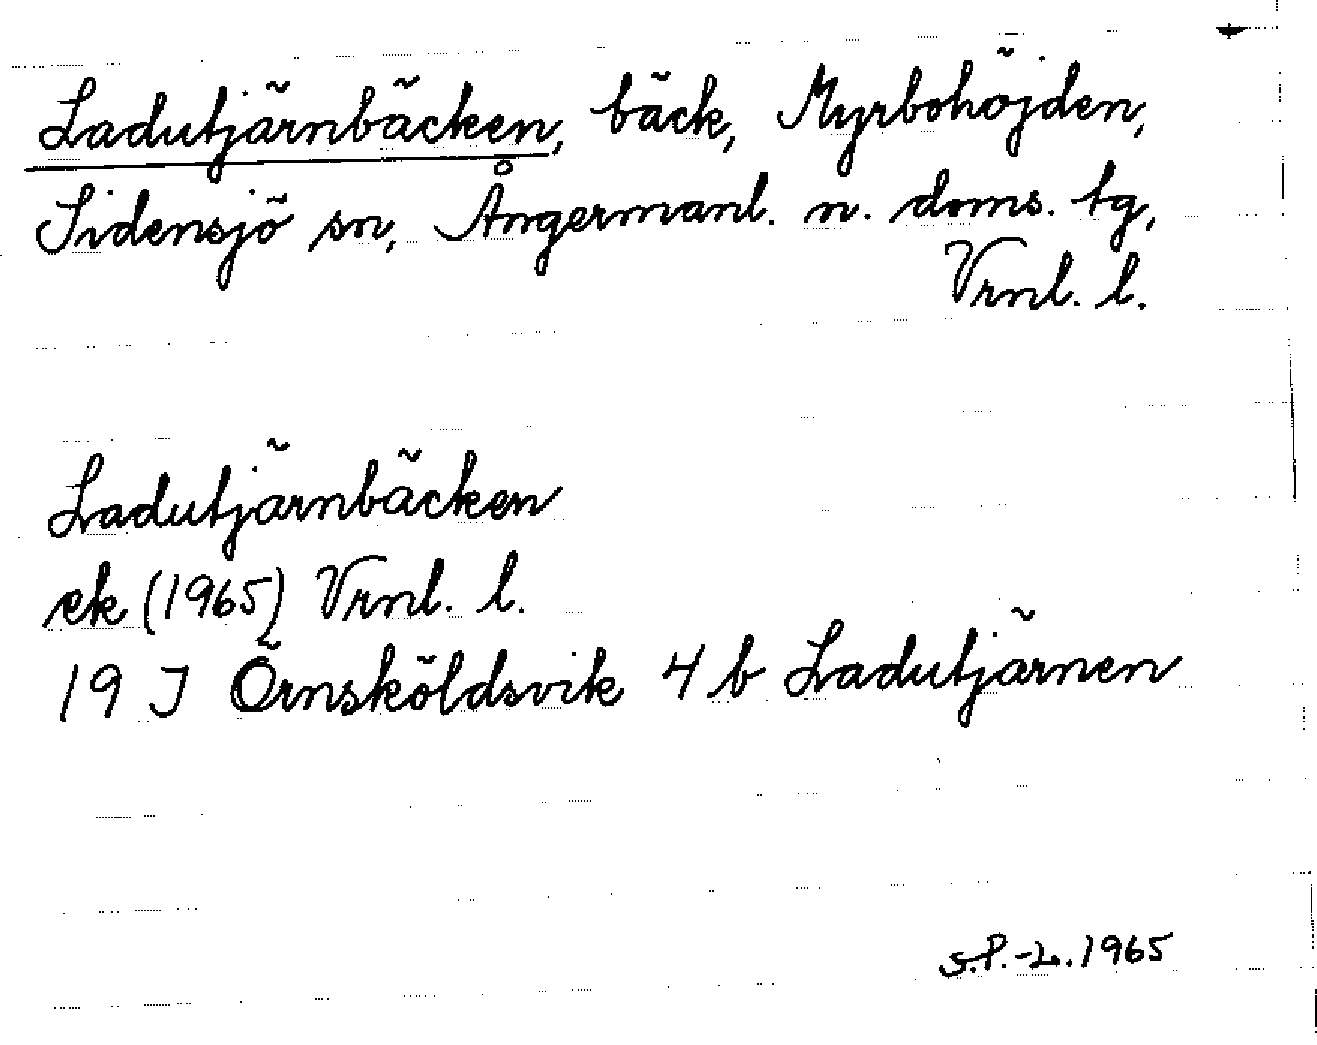 Ladutjärnbäcken, bäck, Myrbohöjden,
Sidensjö sn, Ångermanl. n. doms. tg,
Vrnl. l.
Ladutjärnbäcken
ek (1965) Vrnl. l.
19 J Örnsköldsvik 4 b Ladutjärnen
S.P.-L. 1965